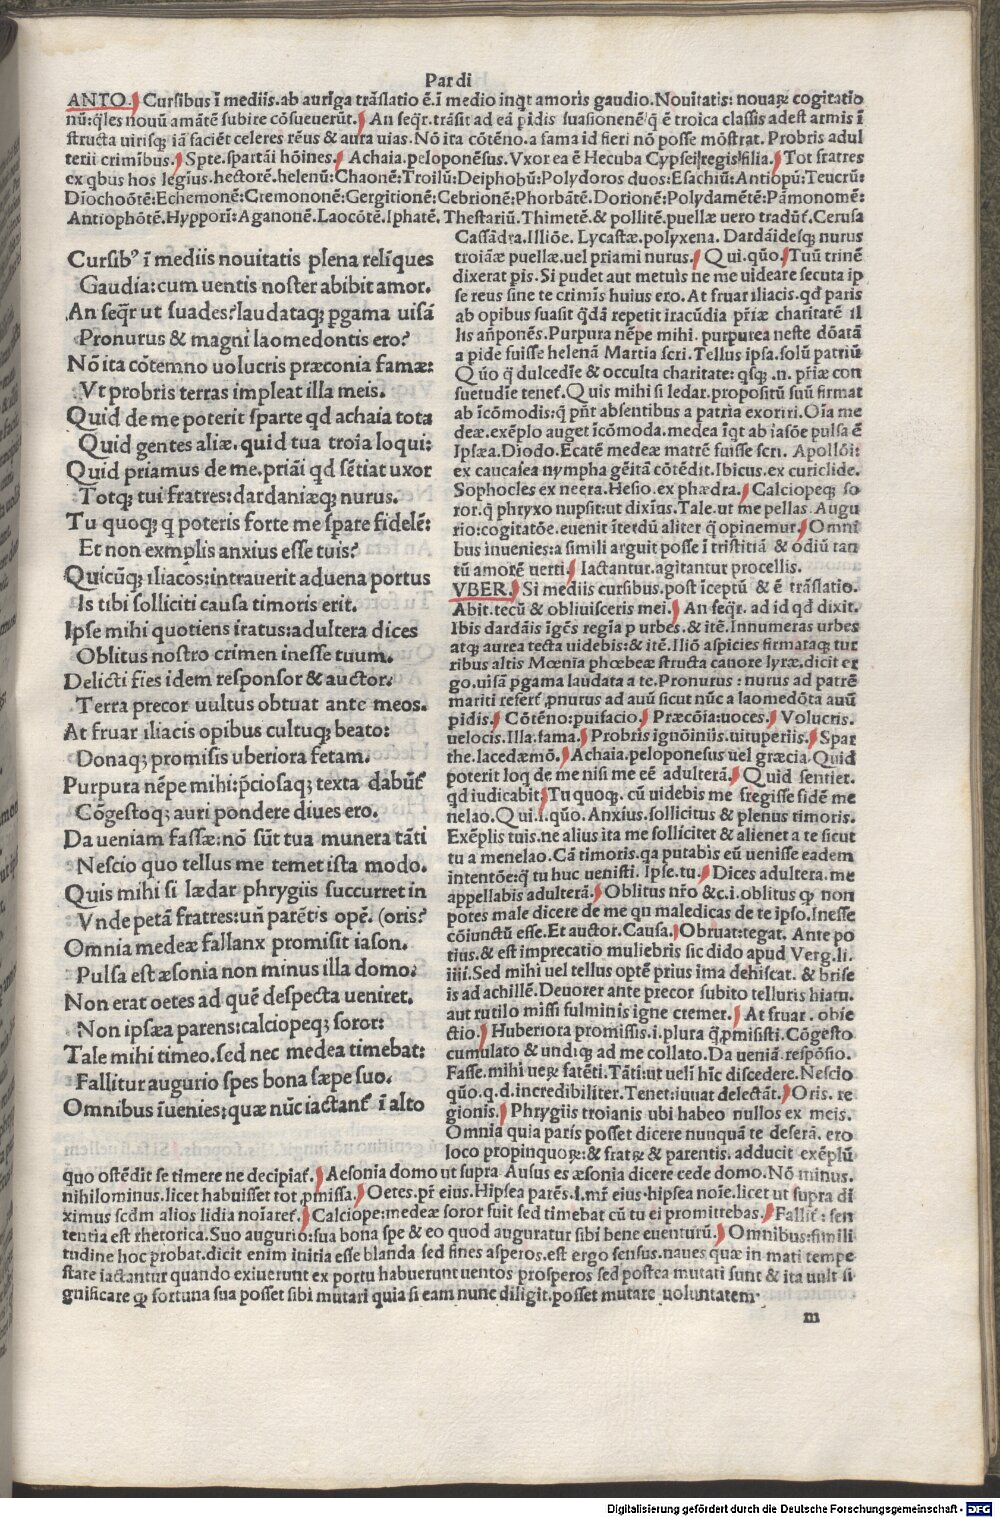 Par di
ANTO. Cursibus ī mediis. ab auriga trāslatio ē. ī medio inqt amoris gaudio. Nouitatis: nouaꝝ cogitatio
nū: qles nouū amātē subire cōsueuerūt. An seqr. trāsit ad eā pidis suasionenē q̄ ē troica classis adest armis ī
structa uirisqꝫ iā faciēt celeres rēus & aura uias. Nō ita cōtēno. a fama id fieri nō posse mōstrat. Probris adul
terii crimibus. Spte. spartāi hōines. Achaia. peloponēsus. Vxor ea ē Hecuba Cypsei regis filia. Tot fratres
ex qbus hos legīus. hectorē. helenū: Chaonē: Troilū: Deiphobū: Polydoros duos: Esachiū: Antiopū: Teucrū:
Diochoōtē: Echemonē: Cremononē: Gergitionē: Cebrionē: Phorbātē. Dorionē: Polydamētē: Pāmonomē:
Antiophōtē. Hypporī: Aganonē. Laocōtē. Iphatē. Thestariū. Thimetē. & pollitē. puellæ uero tradūt̄. Cerusa
Cursibꝰ ī mediis nouitatis plena relīques
Gaudia: cum uentis noster abibit amor.
An seqr̄ ut suades? laudataqꝫ pgama uisā
Pronurus & magni laomedontis ero?
Nō ita cōtemno uolucris præconia famæ:
Vt probris terras impleat illa meis.
Quid de me poterit sparte qd achaia tota
Quid gentes aliæ. quid tua troia loqui:
Quid priamus de me. priāi qd sētiat uxor
Totqꝫ tui fratres: dardaniæqꝫ nurus.
Tu quoqꝫ q poteris forte me spare fidelē:
Et non exmplis anxius esse tuis?
Quicūqꝫ iliacos: intrauerit aduena portus
Is tibi solliciti causa timoris erit.
Ipse mihi quotiens iratus: adultera dices
Oblitus nostro crimen inesse tuum.
Delicti fies idem responsor & auctor.
Terra precor uultus obtuat ante meos.
At fruar iliacis opibus cultuqꝫ beato:
Donaqꝫ promisis uberiora fetam.
Purpura nēpe mihi: p̄ciosaqꝫ texta dabūt̄
Cōgestoqꝫ auri pondere diues ero.
Da ueniam fassæ: nō sūt tua munera tāti
Nescio quo tellus me temet ista modo.
Quis mihi si lædar phrygiis succurret in
Vnde petā fratres: un̄ parētis opē. (oris?
Omnia medeæ fallanx promisit iason.
Pulsa est æsonia non minus illa domo?
Non erat oetes ad quē despecta ueniret.
Non ipsæa parens: calciopeqꝫ soror:
Tale mihi timeo. sed nec medea timebat:
Fallitur augurio spes bona sæpe suo.
Omnibus īuenies: quæ nūc iactant̄ ī alto
Cassādra. Illiōe. Lycastæ. polyxena. Dardāidesqꝫ nurus
troiāæ puellæ. uel priami nurus. Qui. qūo. Tuū trinē
dixerat pis. Si pudet aut metuis ne me uideare secuta ip
se reus sine te crimīs huius ero. At fruar iliacis. qd paris
ab opibus suasit qdā repetit iracūdia prīæ charitatē il
lis an̄ponēs. Purpura nēpe mihi. purpurea ueste dōatā
a pide fuisse helenā Martia scri. Tellus ipsa. solū patriū
Qūo q̄ dulcedīe & occulta charitate: qsqꝫ .n. prīæ con
suetudīe tenet̄. Quis mihi si ledar. propositū suū firmat
ab īcōmodis: q̄ pn̄t absentibus a patria exoriri. Oīa me
deæ. exēplo auget īcōmoda. medea īqt ab iasōe pulsa ē
Ipsæa. Diodo. Ecatē medeæ matrē fuisse scri. Apollōi:
ex caucasea nympha gēitā cōtēdit. Ibicus. ex curiclide.
Sophocles ex neera. Hesio. ex phædra. Calciopeqꝫ so
ror. q̄ phryxo nupsit: ut dixius. Tale. ut me pellas. Augu
rio: cogitatōe. euenit īterdū aliter q̄ opinemur. Omni
bus inuenies: a simili arguit posse ī tristitiā & odiū tan
tū amorē uerti. Iactantur. agitantur procellis.
VBER. Si mediis cursibus. post īceptū & ē trāslatio.
Abit. tecū & obliuisceris mei. An seqr̄. ad id qd dixit.
Ibis dardāis īgēs regīa p urbes. & itē. Innumeras urbes
atqꝫ aurea tecta uidebis: & itē. Iliō aspicies firmataqꝫ tur
ribus altis Mœnia phœbeæ structa canore lyræ. dicit er
go. uisā pgama laudata a te. Pronurus: nurus ad patrē
mariti refert̄. pnurus ad auū sicut nūc a laomedōta auū
pidis. Cōtēno: puifacio. Præcōia: uoces. Volucris.
uelocis. Illa. fama. Probris ignōiniis. uituperiis. Spar
the. lacedæmō. Achaia. peloponesus uel græcia. Quid
poterit loq de me nisi me eē adulterā. Quid sentiet.
qd iudicabit. Tu quoqꝫ. cū uidebis me fregisse fidē me
nelao. Qui. i. qūo. Anxius. sollicitus & plenus timoris.
Exēplis tuis. ne alius ita me sollicitet & alienet a te sicut
tu a menelao. Cā timoris. qa putabis eū uenisse eadem
intentōe: q̄ tu huc uenisti. Ipse. tu. Dices adultera. me
appellabis adulterā. Oblitus nr̄o &c. i. oblitus ꝙ non
potes male dicere de me qn maledicas de te ipso. Inesse
cōiunctū esse. Et auctor. Causa. Obruat: tegat. Ante po
tius. & est imprecatio muliebris sic dido apud Verg. li.
iiii. Sed mihi uel tellus optē prius īma dehiscat. & brise
is ad achillē. Deuorer ante precor subito telluris hiatu.
aut rutilo missi fulminis igne cremer. At fruar. obie
ctio. Huberiora promissis. i. plura q̄ pmisisti. Cōgesto
cumulato & undiqꝫ ad me collato. Da ueniā. respōsio.
Fasse. mihi ueꝝ fatēti. Tāti: ut uelī hīc discedere. Nescio
qūo. q. d. incredibiliter. Tenet: iuuat delectāt. Oris. re
gionis. Phrygiis troianis ubi habeo nullos ex meis.
Omnia quia paris posset dicere nunquā te deserā. ero
loco propinquoꝝ: & fratꝝ & parentis. adducit exēplū
quo ostēdit se timere ne decipiat̄. Aesonia domo ut supra Ausus es æsonia dicere cede domo. Nō minus.
nihilominus. licet habuisset tot pmissa. Oetes. pr̄ eius. Hipsea parēs. i. mr̄ eius. hipsea noīe. licet ut supra di
ximus scdm alios lidia noīaret̄. Calciope: medeæ soror fuit sed timebat cū tu ei promittebas. Fallit̄: sen
tentia est rhetorica. Suo augurio: sua bona spe & eo quod auguratur sibi bene euenturū. Omnibus: simili
tudine hoc probat. dicit enim initia esse blanda sed fines asperos. est ergo sensus. naues quæ in mati tempe
state iactantur quando exiuerunt ex portu habuerunt uentos prosperos sed postea mutati sunt & ita uult si
gnificare ꝙ fortuna sua posset sibi mutari quia si eam nunc diligit. posset mutare uoluntatem.
m
Digitalisierung gefördert durch die Deutsche Forschungsgemeinschaft - DFG